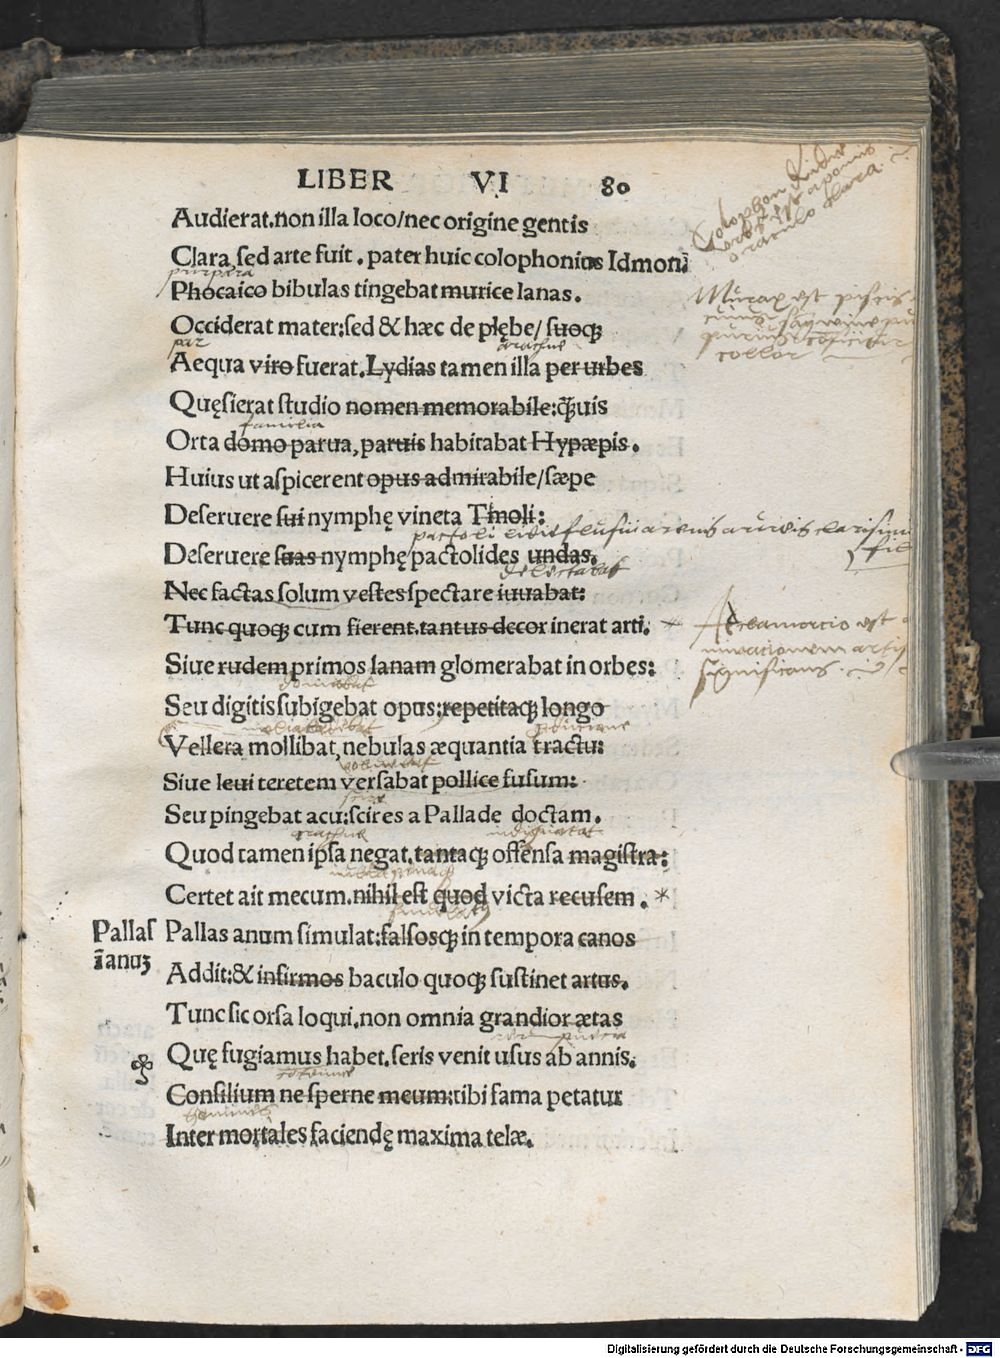 LIBER VI 80
Audierat.non illa loco/nec origine gentis
Clara, sed arte fuit. pater huic colophonius Idmon
purpura
Phocaico bibulas tingebat murice lanas.
Occiderat mater:sed & hæc de plębe/ suoqꝫ
par arachne
Aequa viro fuerat. Lydias tamen illa per urbes
Quęsierat studio nomen memorabile:q̄ꝫuis
familia
Orta domo parua, paruis habitabat Hypæpis.
Huius ut aspicerent opus admirabile/sæpe
Deseruere sui nymphę vineta Tmoli:
pactoli
Deseruere suas nymphę pactolides undas.
delectabat
Nec factas solum vestes spectare iuuabat:
Tunc quoqꝫ cum fierent.tantus decor inerat arti.
Siue rudem primos lanam glomerabat in orbes:
Seu digitis subigebat opus:repetitaqꝫ longo
Vellera mollibat, nebulas æquantia tractu:
Siue leui teretem versabat pollice fusum:
Seu pingebat acu:scires a Pallade doctam.
arachne
Quod tamen ipsa negat.tantaqꝫ offensa magistra:
Certet ait mecum.nihil est quod victa recusem. *
Pallas anum simulat:falsosqꝫ in tempora canos
Addit:& infirmos baculo quoqꝫ sustinet artus.
Tunc sic orsa loqui.non omnia grandior ætas
Quę fugiamus habet.seris venit usus ab annis.
Consilium ne sperne meum:tibi fama petatur
homines
Inter mortales faciendę maxima telæ.
Pallas
ī anuꝫ
Colophon
oraculo clara
Murax est piscis
color
Acclamatio est
significans
Digitalisierung gefördert durch die Deutsche Forschungsgemeinschaft - DFG